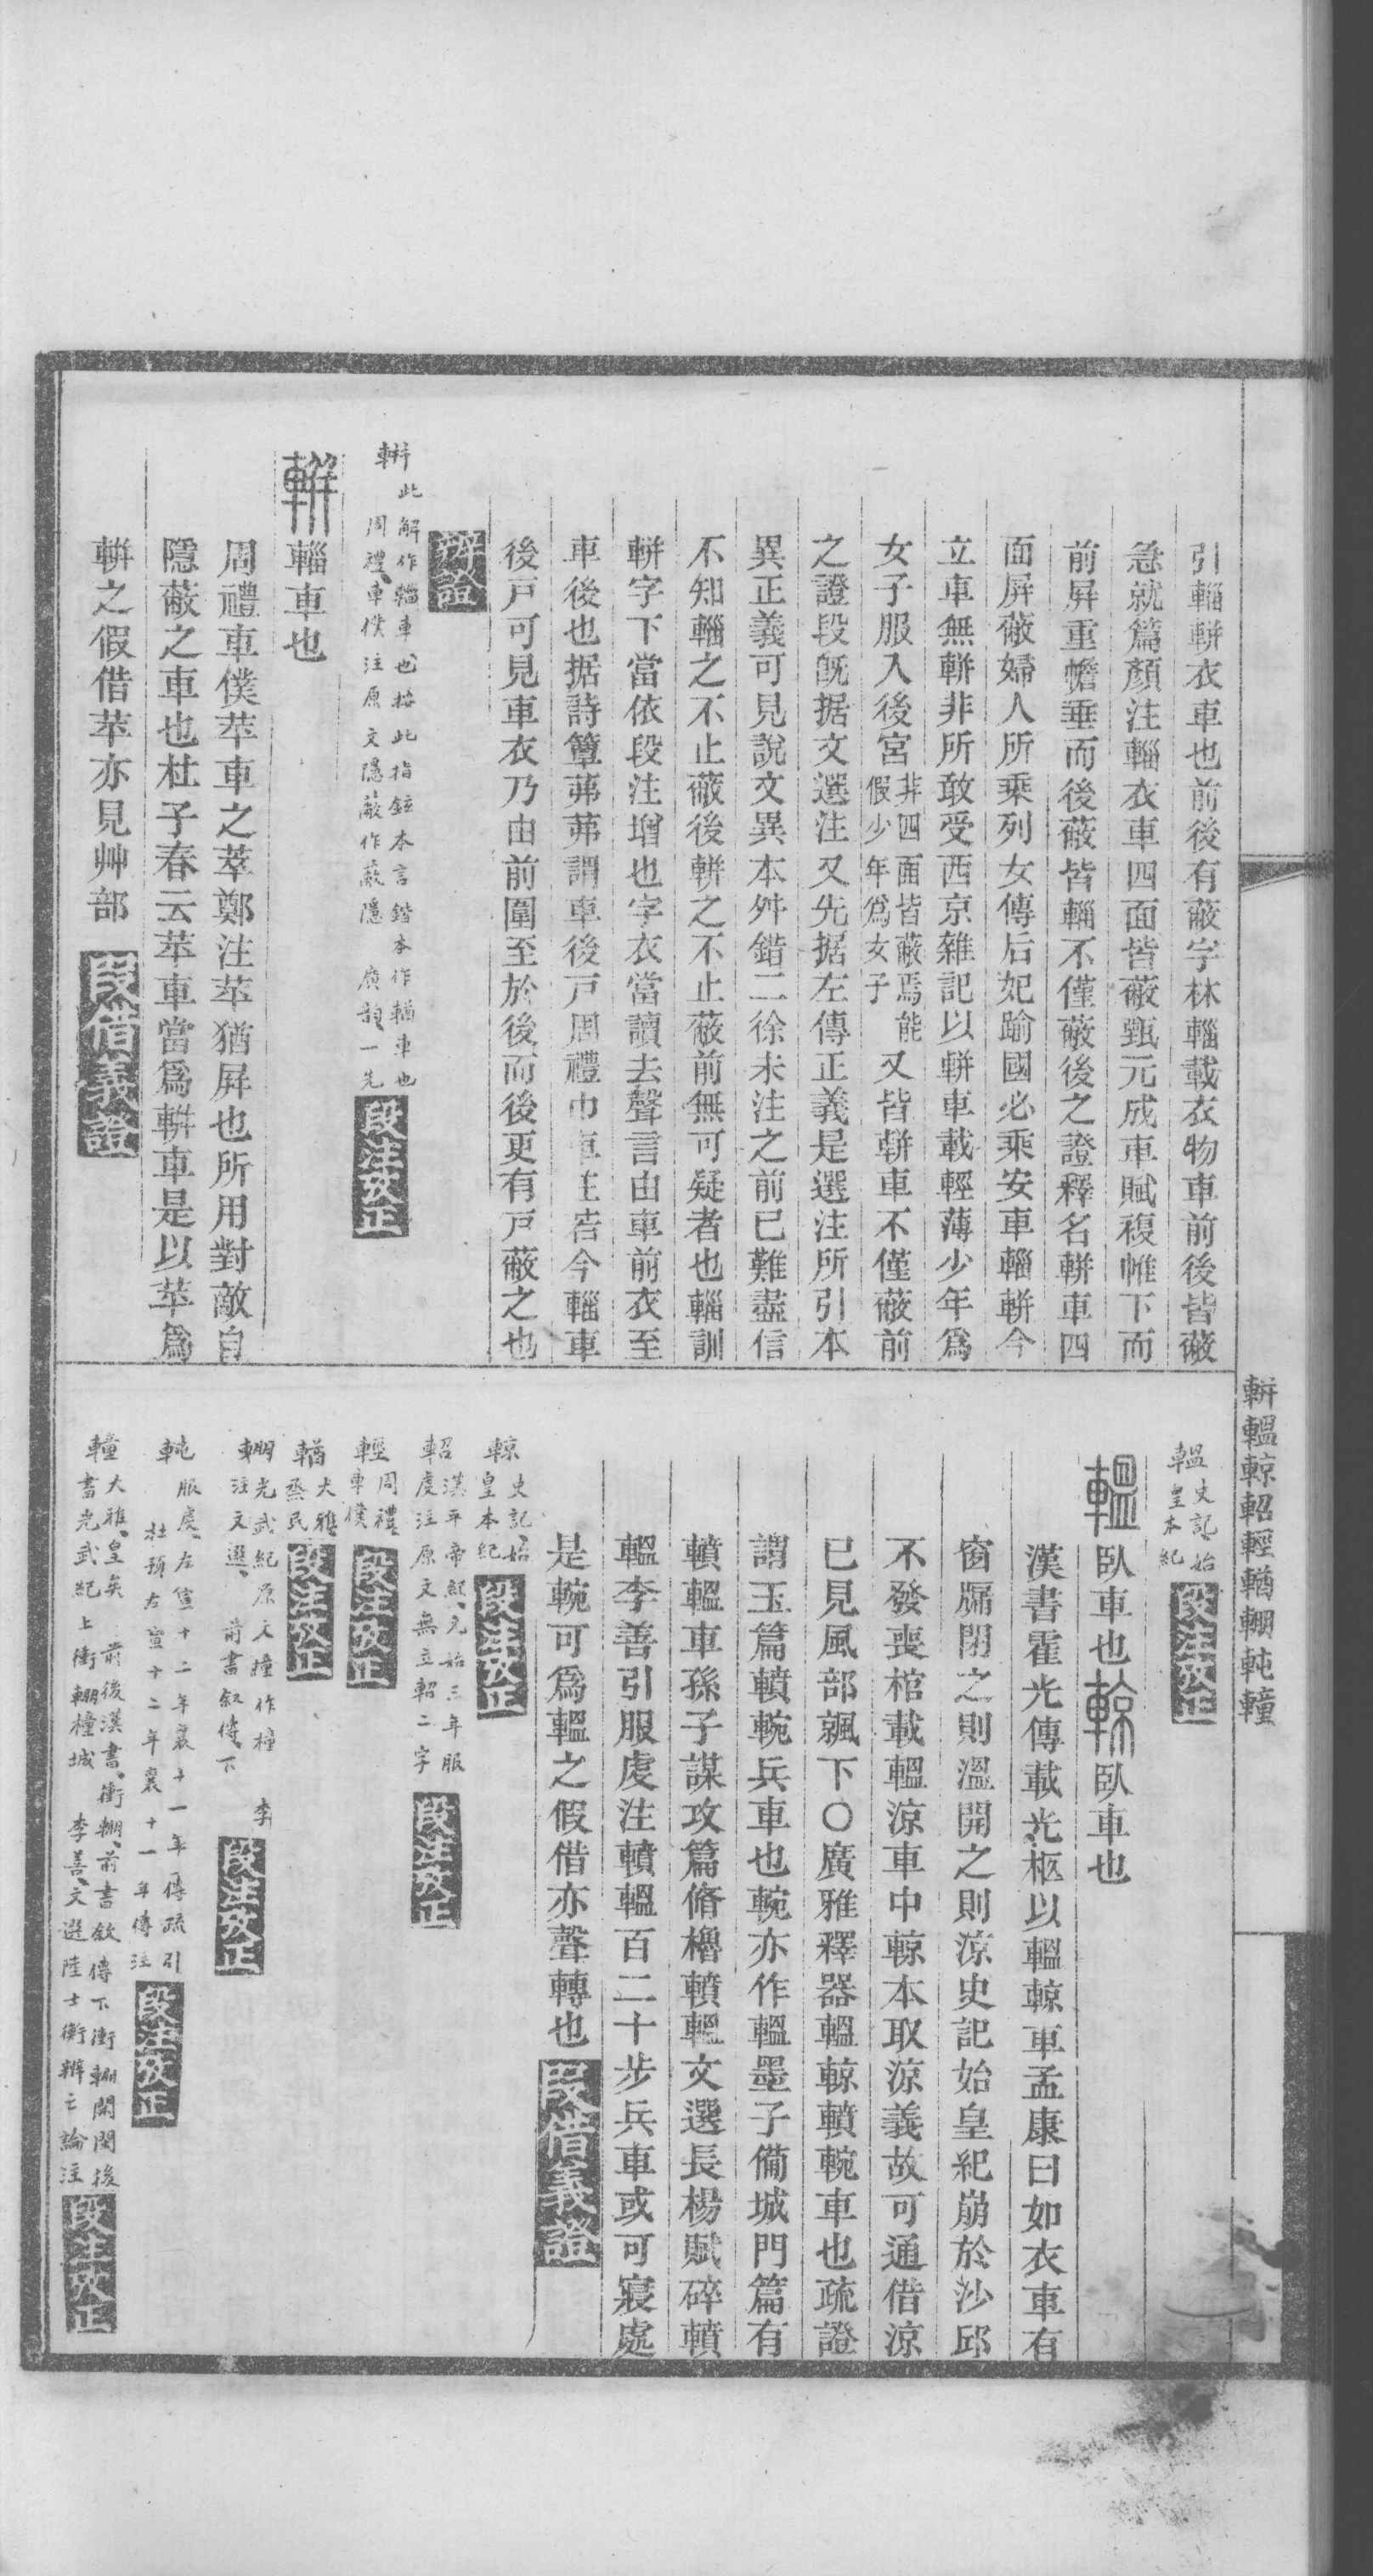 軿轀輬軺輕輶輣軘䡴
引輜軿衣車也前後有蔽字林輜載衣物車前後皆蔽
急就篇顏注輜衣車四面皆蔽甄元成車賦複帷下而
前屏重幨垂而後蔽皆輜不僅蔽後之證釋名軿車四
面屏蔽婦人所乘列女傳后妃踰國必乘安車輜軿今
立車無軿非所敢受西京雜記以軿車載輕薄少年爲
女子服入後宮非四面皆蔽焉能假少年爲女子又皆軿車不僅蔽前
之證段既据文選注又先据左傳正義是選注所引本
異正義可見說文異本舛錯二徐未注之前已難盡信
不知輜之不止蔽後軿之不止蔽前無可疑者也輜訓
軿字下當依段注增也字衣當讀去聲言由車前衣至
車後也据詩簟茀茀謂車後戸周禮巾車注言今輜車
後戸可見車衣乃由前圍至於後而後更有戸蔽之也
斠證
軿 此解作輜車也按此指鉉本言鍇本作輶車也
周禮車僕注原文隱蔽作蔽隱 廣韵一先 段注攷正
軿輜車也
周禮車僕苹車之萃鄭注苹猶屏也所用對敵自
隱蔽之車也杜子春云苹車當爲軿車是以苹爲
軿之假借苹亦見艸部 段借義證
轀 史記始皇本紀 段注攷正
轀臥車也輬臥車也
漢書霍光傳載光柩以轀輬車孟康曰如衣車有
窗牖閉之則溫開之則涼史記始皇紀崩於沙邱
不發喪棺載轀涼車中輬本取涼義故可通借涼
已見風部飆下○廣雅釋器轀輬轒䡝車也疏證
謂玉篇轒䡝兵車也䡝亦作轀墨子備城門篇有
轒轀車孫子謀攻篇脩櫓轒轀文選長楊賦碎轒
轀李善引服虔注轒轀百二十步兵車或可寢處
是䡝可爲轀之假借亦聲轉也 段借義證
輬 史記始皇本紀 段注攷正
軺 漢平帝紀元始三年服虔注原文無立軺二字 段注攷正
輕 周禮車僕 段注攷正
輶 大雅烝民 段注攷正
輣 光武紀原文撞作橦 李注文選 前書叙傳下 段注攷正
軘 服虔左宣十二年襄十一年傳疏引
杜預左宣十二年襄十一年傳注 段注攷正
䡴 大雅皇矣 前後漢書衝輣前書敘傳下衝輣閑閑後
書光武紀上衝輣橦城 李善文選陸士衡辯亡論注 段注攷正